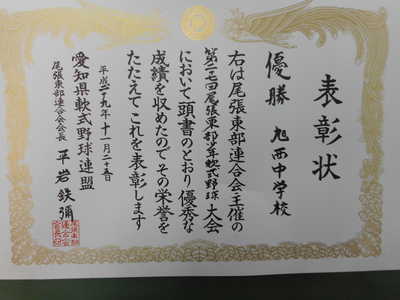 表彰状
優勝 旭西中学校
右は尾張東部連合会主催の
第二七回尾張東部少年軟式野球大会
において頭書のとおり優秀な
成績を収めたのでその栄誉を
たたえてこれを表彰します
平成二十九年十一月二十五日
愛知県軟式野球連盟
尾張東部連合会会長 平岩鉄彌